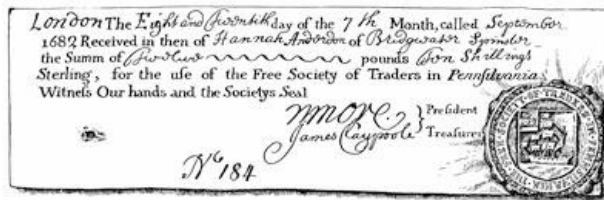 London The Eight and Twentith day of the 7th Month, called September
1682 Received in then of Hannah Anderdon of Bridgwater Spinster
the Summ of Twelve pounds Ten Shillings
Sterling, for the use of the Free Society of Traders in Pennsilvania
Witness Our hands and the Societys Seal
N More. President
James Claypoole Treasurer
No 184